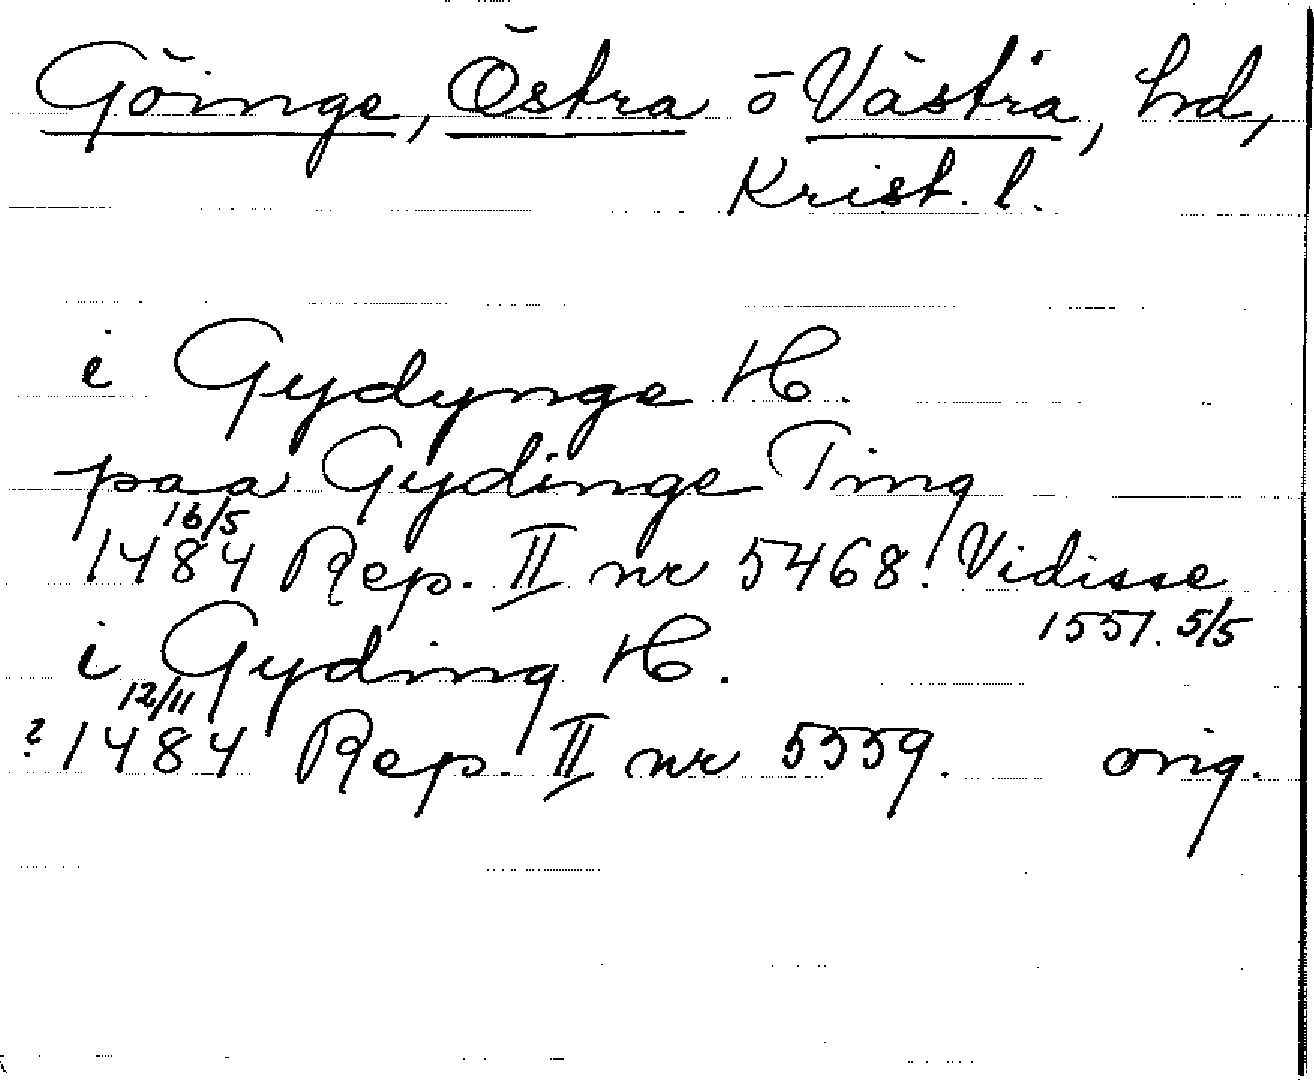 Göinge, Östra o Västra, hd,
Krist. l.
i Gydynge H.
paa Gydinge Ting
16/5
1484 Rep. II nr 5468. Vidisse
1557. 5/5
i Gyding H.
12/11
? 1484 Rep. II nr 5559. orig.